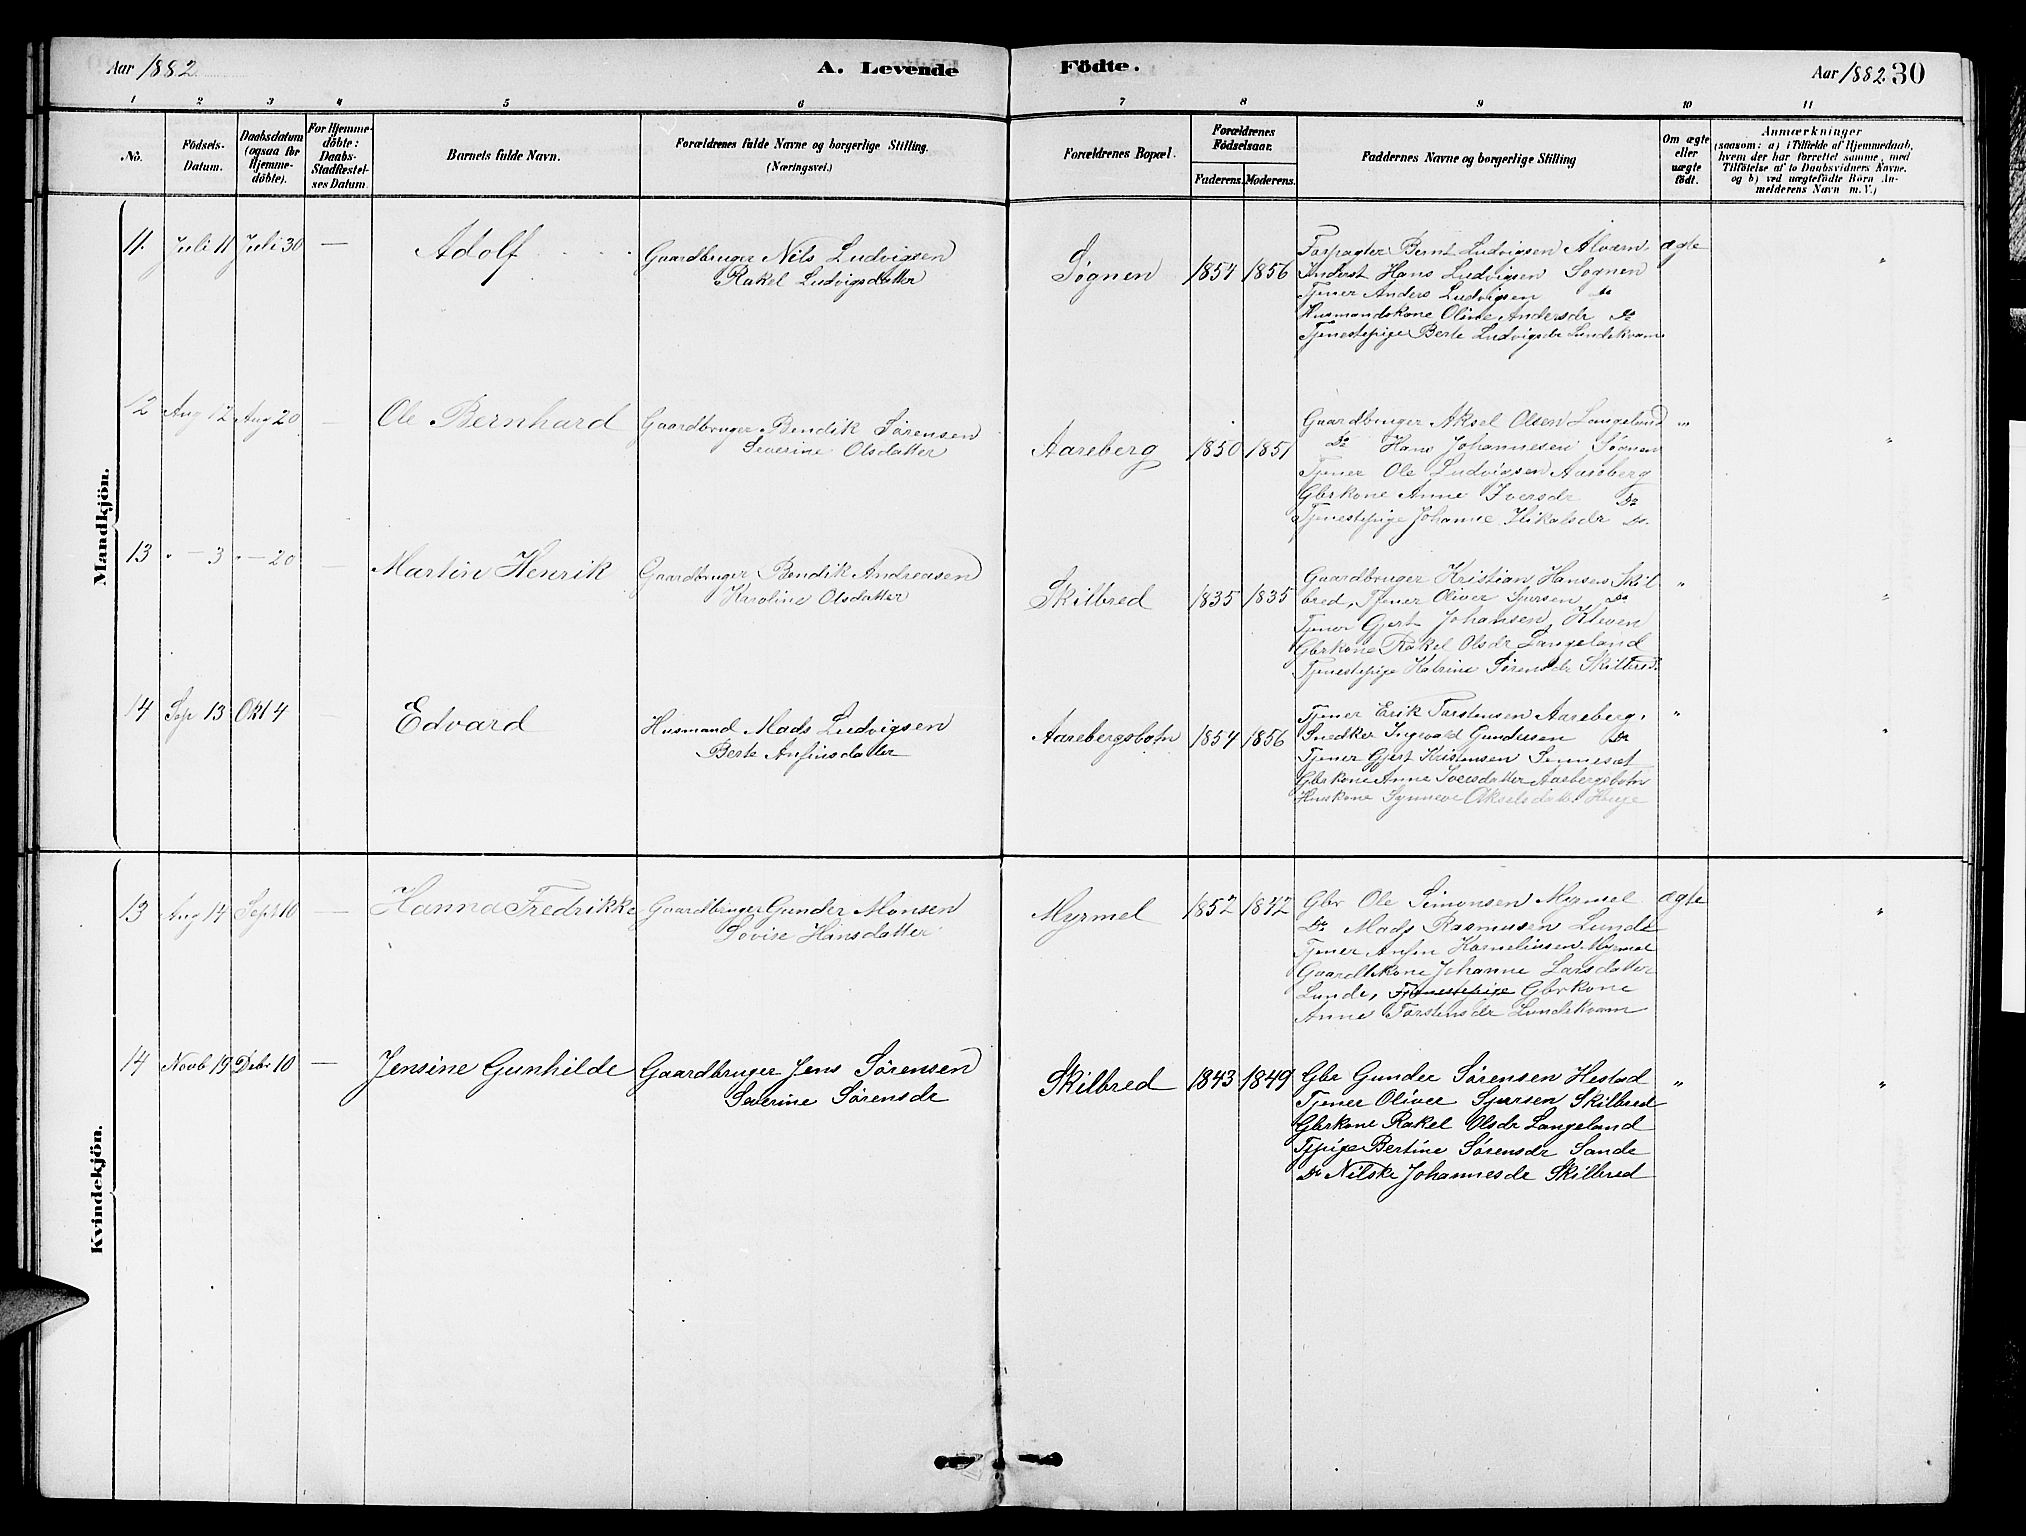 Aar 1882 A. Levende Födte. Aar 1882 30
1 2 3 4 5 6 7 8 9 10 11
No. Födsels-Datum. Daabsdatum (ogsaa for Hjemme-döbte). For Hjemme-döbte: Daabs-Stadfæstel-ses Datum. Barnets fulde Navn. Forældrenes fulde Navne og borgerlige Stilling. (Næringsvei.) Forældrenes Bopæl. Forældrenes Födselsaar. Faderens. Moderens. Faddernes Navne og borgerlige Stilling Om ægte eller uægte födt. Anmærkninger (saasom: a) i Tilfælde af Hjemmedaab, hvem der har forrettet samme, med Tilföielse af to Daabsvidners Navne. og b) ved uægtefödte Börn An-melderens Navn m. V.)
Mandkjön.
11. Juli 11 Juli 30 — Adolf Gaardbruger Nils Ludvigsen Søgnen 1854 1856 Forpagter Bernt Ludvigsen Alværn ægte "
Rakel Ludvigsdatter
Inderst Hans Ludvigsen Søgnen
Tjener Anders Ludvigsen Do
Husmandskone Oline Andersdr Do
Tjenestepige Berte Ludvigsdr Lundekvam
12 Aug 12 Aug 20 — Ole Bernhard Gaardbruger Bendik Sørensen Aareberg 1850 1851 Gaardbruger Aksel Olsen Langeland " "
Severine Olsdatter
Do Hans Johannesen Søgnen
Tjener Ole Ludvigsen Aareberg
Gbrkone Anne Iversdr Do
Tjenestepige Johanne Mikalsdr Do.
13 " — 3 " — 20 — Martin Henrik Gaardbruger Bendik Andreasen Skilbred 1835 1835 Gaardbruger Kristian Hansen Skil- " "
Karoline Olsdatter
bred, Tjener Oliver Sjursen Do
Tjener Gjert Johansen, Kleven
Gbrkone Rakel Olsdr Langeland
Tjenestepige Katrine Sørensdr Skilbred
14 Sep 13 Okt 4 — Edvard Husmand Mads Ludvigsen Aarebergsbotn 1854 1856 Tjener Erik Torstensen Aareberg, " "
Berte Anfinsdatter
Snedker Ingevald Gundersen Do
Tjener Gjert Kristensen Sennesæt
Gbrkone Anne Iversdatter Aarbergsbotn
Huskone Synneve Akselsdatter Hauge
Kvindekjön.
13 Aug 14 Sept 10 — Hanna Fredrikke Gaardbruger Gunder Monsen Myrmel 1852 1842 Gbr Ole Simonsen Myrmel ægte "
Lovise Hansdatter
Do Mads Rasmusen Lunde
Tjener Anfin Korneliussen Myrmel
Gaardbkone Johanne Larsdatter
Lunde, Tjenestepige Gbrkone
Anne Torstensdr Lundekvam
14 Novb 19 Debr 10 — Jensine Gunhilde Gaardbruger Jens Sørensen Skilbred 1843 1849 Gbr Gunder Sørensen Hestad " "
Severine Sørensdr
Tjener Oliver Sjursen Skilbred
Gbrkone Rakel Olsdr Langeland
Tjpige Bertine Sørensdr Sande
Do Nilske Johannesdr Skilbred